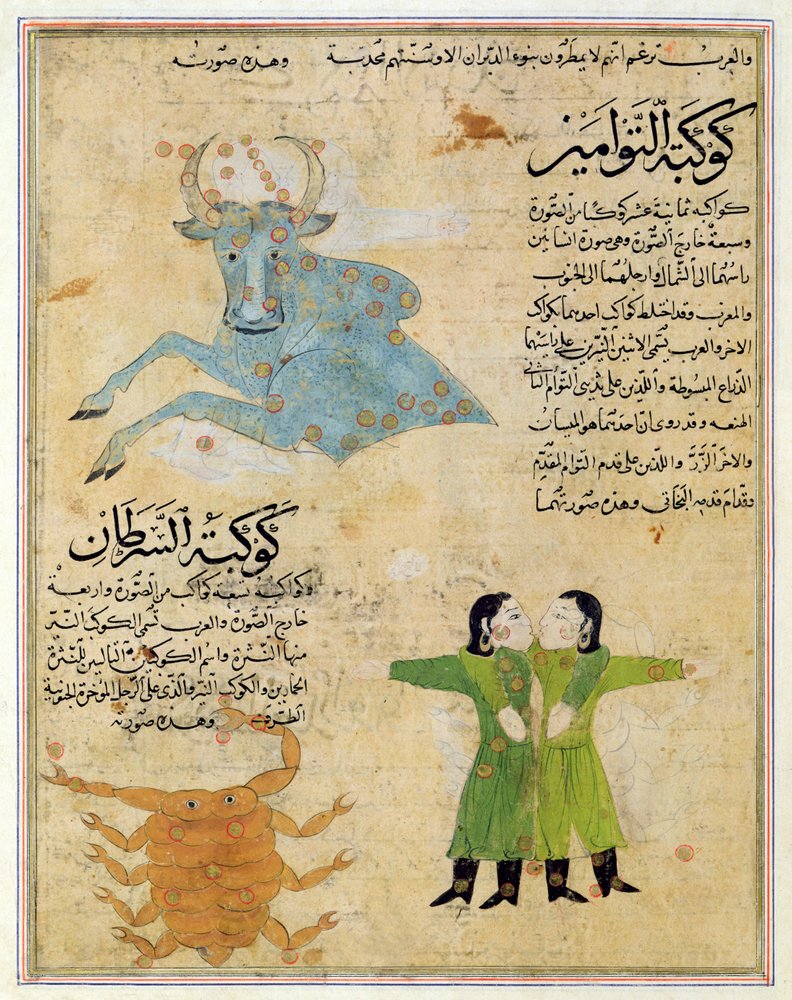 والعرب تزعم انهم لا يمطرون بنوء الدبران الا وسنتهم مجدبة وهذه صورته
كوكبة التوامين
كواكبه ثمانية عشر كوكبا من الصورة
وسبعة خارج الصورة وهى صورة انسانين
راسهما الى الشمال وارجلهما الى الجنوب
والمغرب وقد اختلط كواكب احدهما بكواكب
الاخر والعرب يسمى الاثنين النيرين على راسهما
الذراع المبسوطة واللذين على ثديى التوأم الثانى
الهنعه وقد روى ان احدهما هو الميسان
والاخر الزر واللذين على قدم التوام المقدم
وقدام قدمه البخاتى وهذه صورتهما
كوكبة السرطان
وكواكبه تسعة كواكب من الصورة واربعة
خارج الصورة والعرب تسمى الكوكب النير
منها النثرة واسم الكوكبين التاليين للنثرة
الحمارين والكوكب النير والذى على الرجل المؤخرة الجنوبية
الطرف وهذه صورته